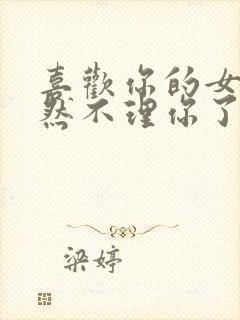 喜歡你的女
然不理你了
梁婷